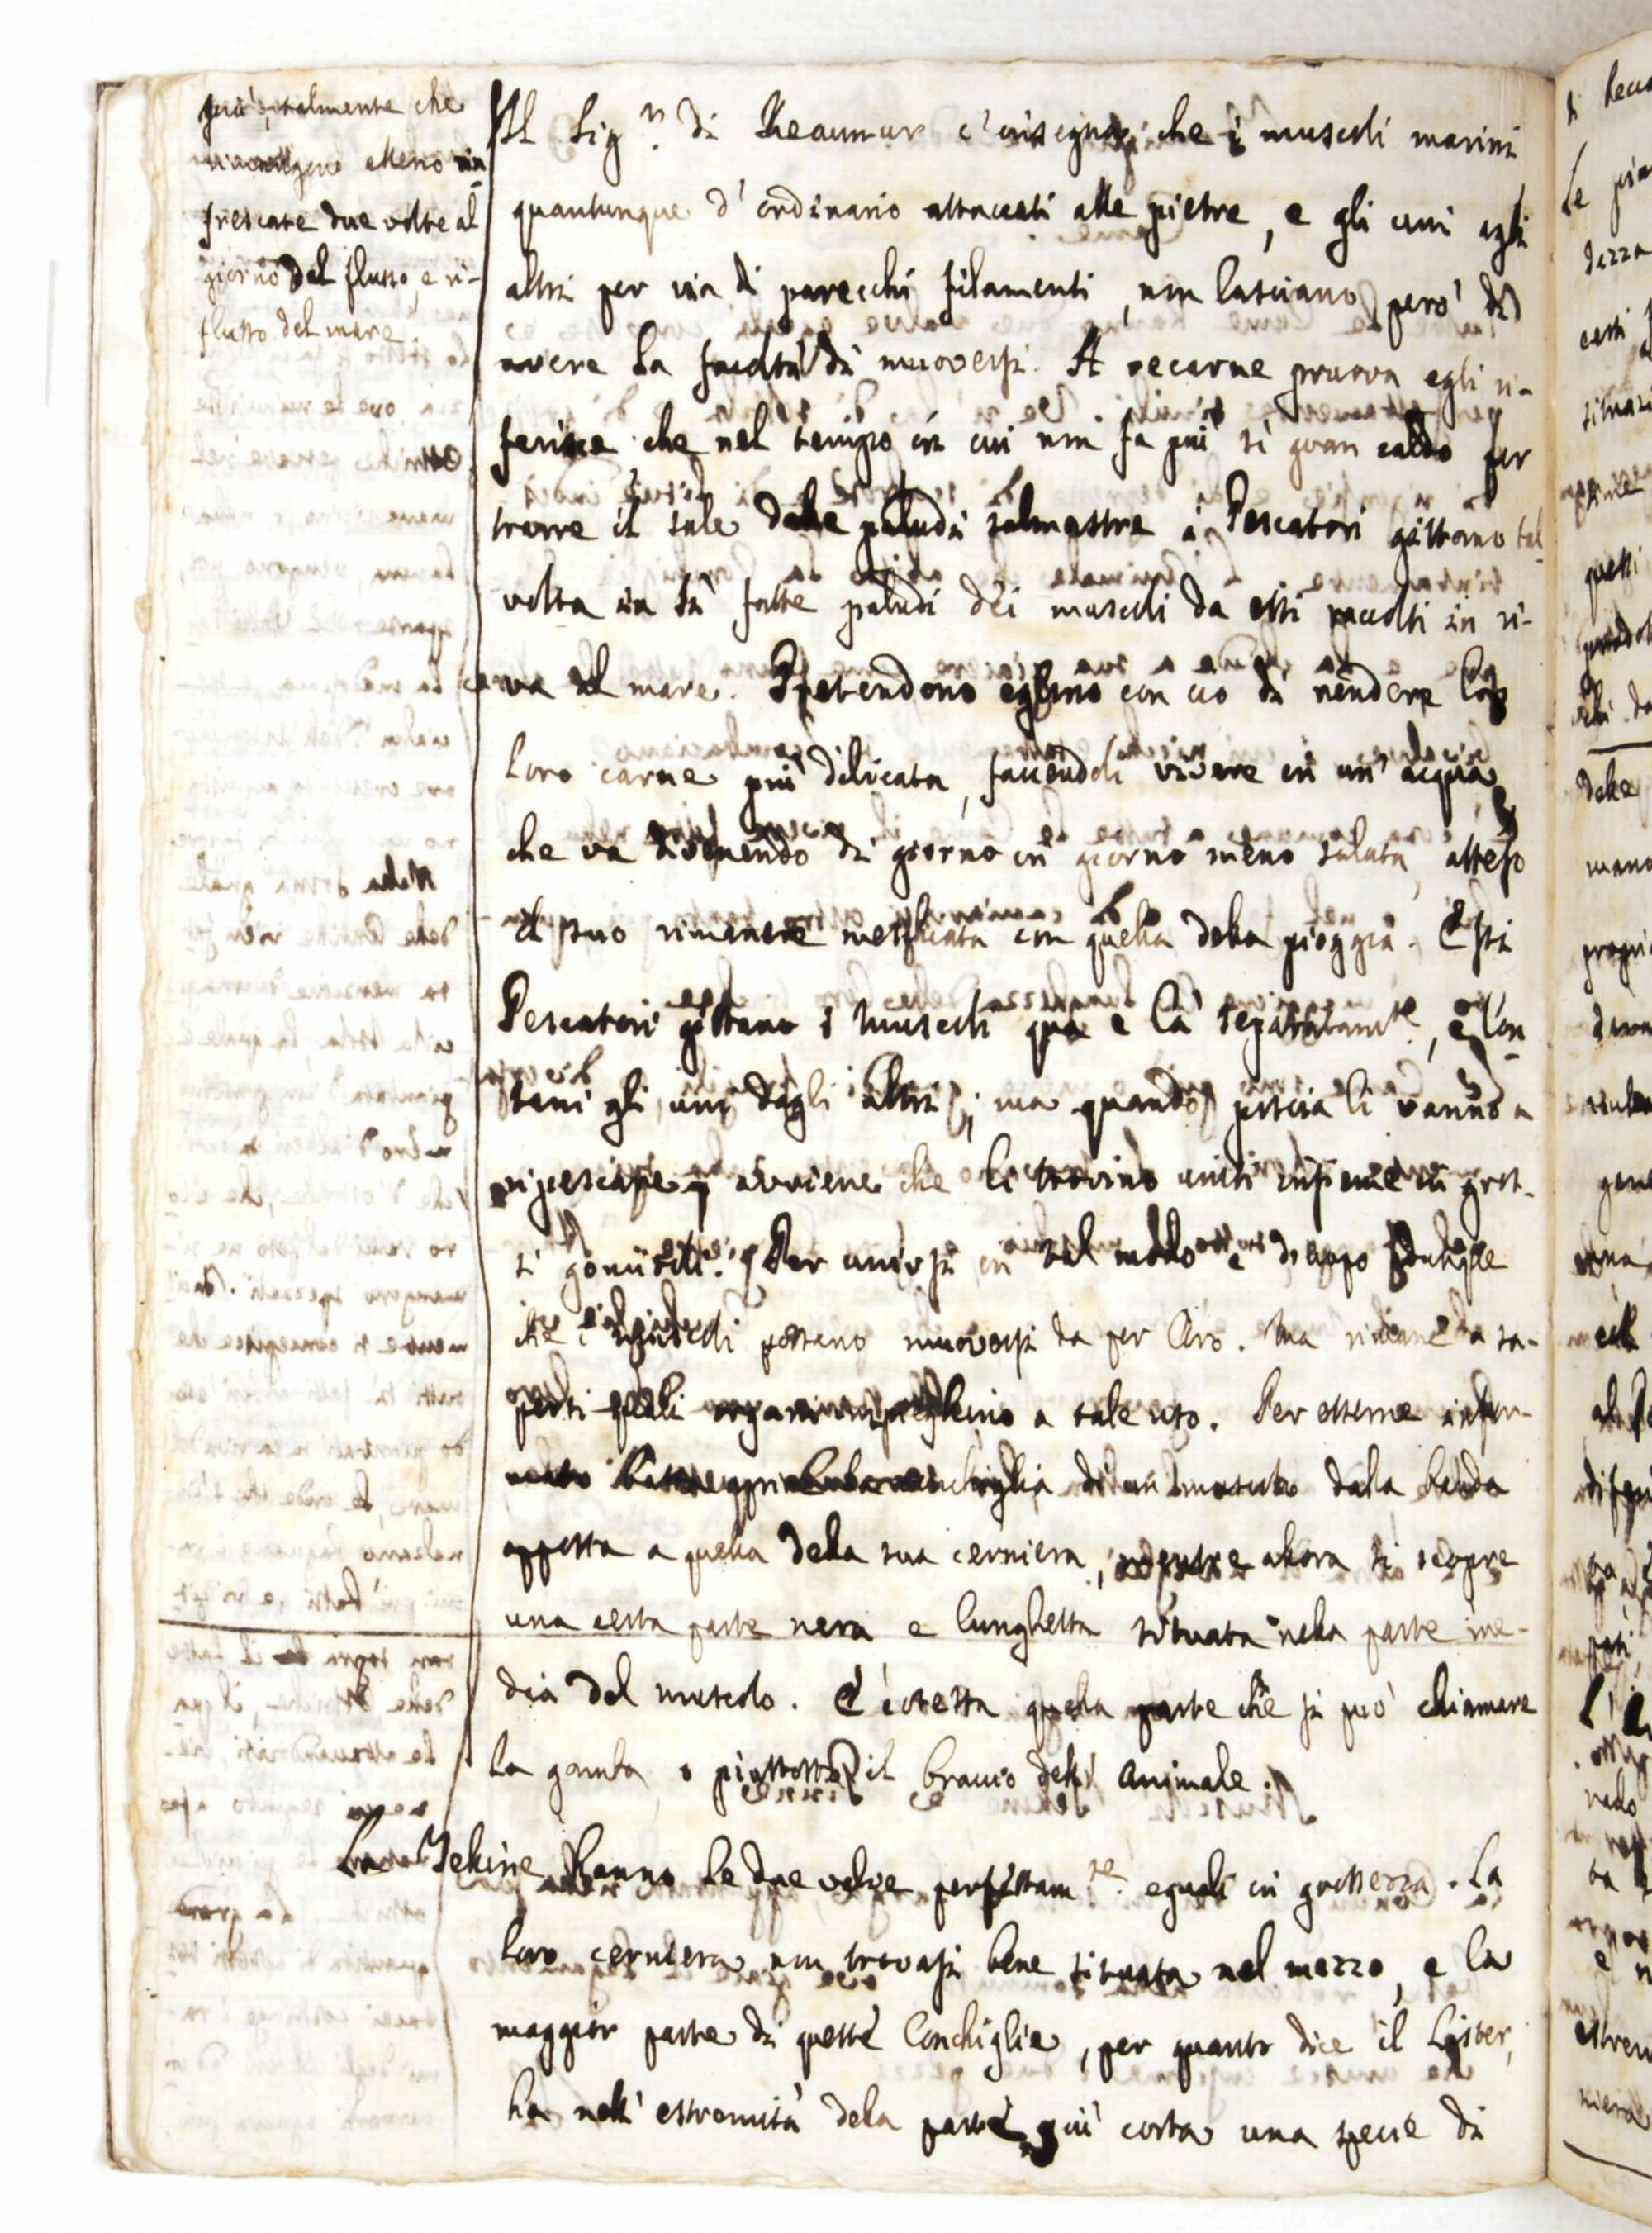 più, talmente che
rimangono almeno rin
frescate due volte al
giorno dal flusso, e ri-
flusso del mare.
Il Sig.r di Reaumur c'insegna, che i muscoli marini
quantunque d'ordinario attaccati alle pietre, e gli uni agli
altri per via di parecchi filamenti, non lasciano però di
avere la facoltà di muoversi. A recarne pruova egli ri-
ferisce che nel tempo in cui non fa più sì gran caldo per
trarre il sale dalle paludi salmastre i Pescatori gittano tal
volta in sì fatte paludi dei muscoli da essi raccolti in ri-
va al mare. Pretendono eglino con ciò di rendere la
loro carne più dilicata, facendoli vivere in un' acqua
che va divenendo di giorno in giorno meno salata, atteso
il suo rimanere meschiata con quella della pioggia. Essi
Pescatori gittano i muscoli qua e là separatam.te, e lon
tani gli uni dagli altri; ma quando poscia li vanno a
ripescare avviene che li trovino uniti insieme in gros-
si gomitoli. Per unirsi in tal modo è d'uopo dunque
che i muscoli possano muoversi da per loro. Ma rimane a sa-
persi quali organi impieghino a tale uso. Per esserne infor-
mato basta aprire la conchiglia di un muscolo dalla banda
opposta a quella della sua cerniera, mentre allora si scopre
una certa parte nera e lunghetta situata nella parte me-
dia del muscolo. È cotesta quella parte che si può chiamare
la gamba, o piuttosto il braccio dell' animale.
Le Telline hanno le due valve perfettam.te eguali in grossezza. La
loro cerniera non trovasi bene situata nel mezzo, e la
maggior parte di queste Conchiglie, per quanto dice il Lister,
ha nell' estremità della parte più corta una specie di